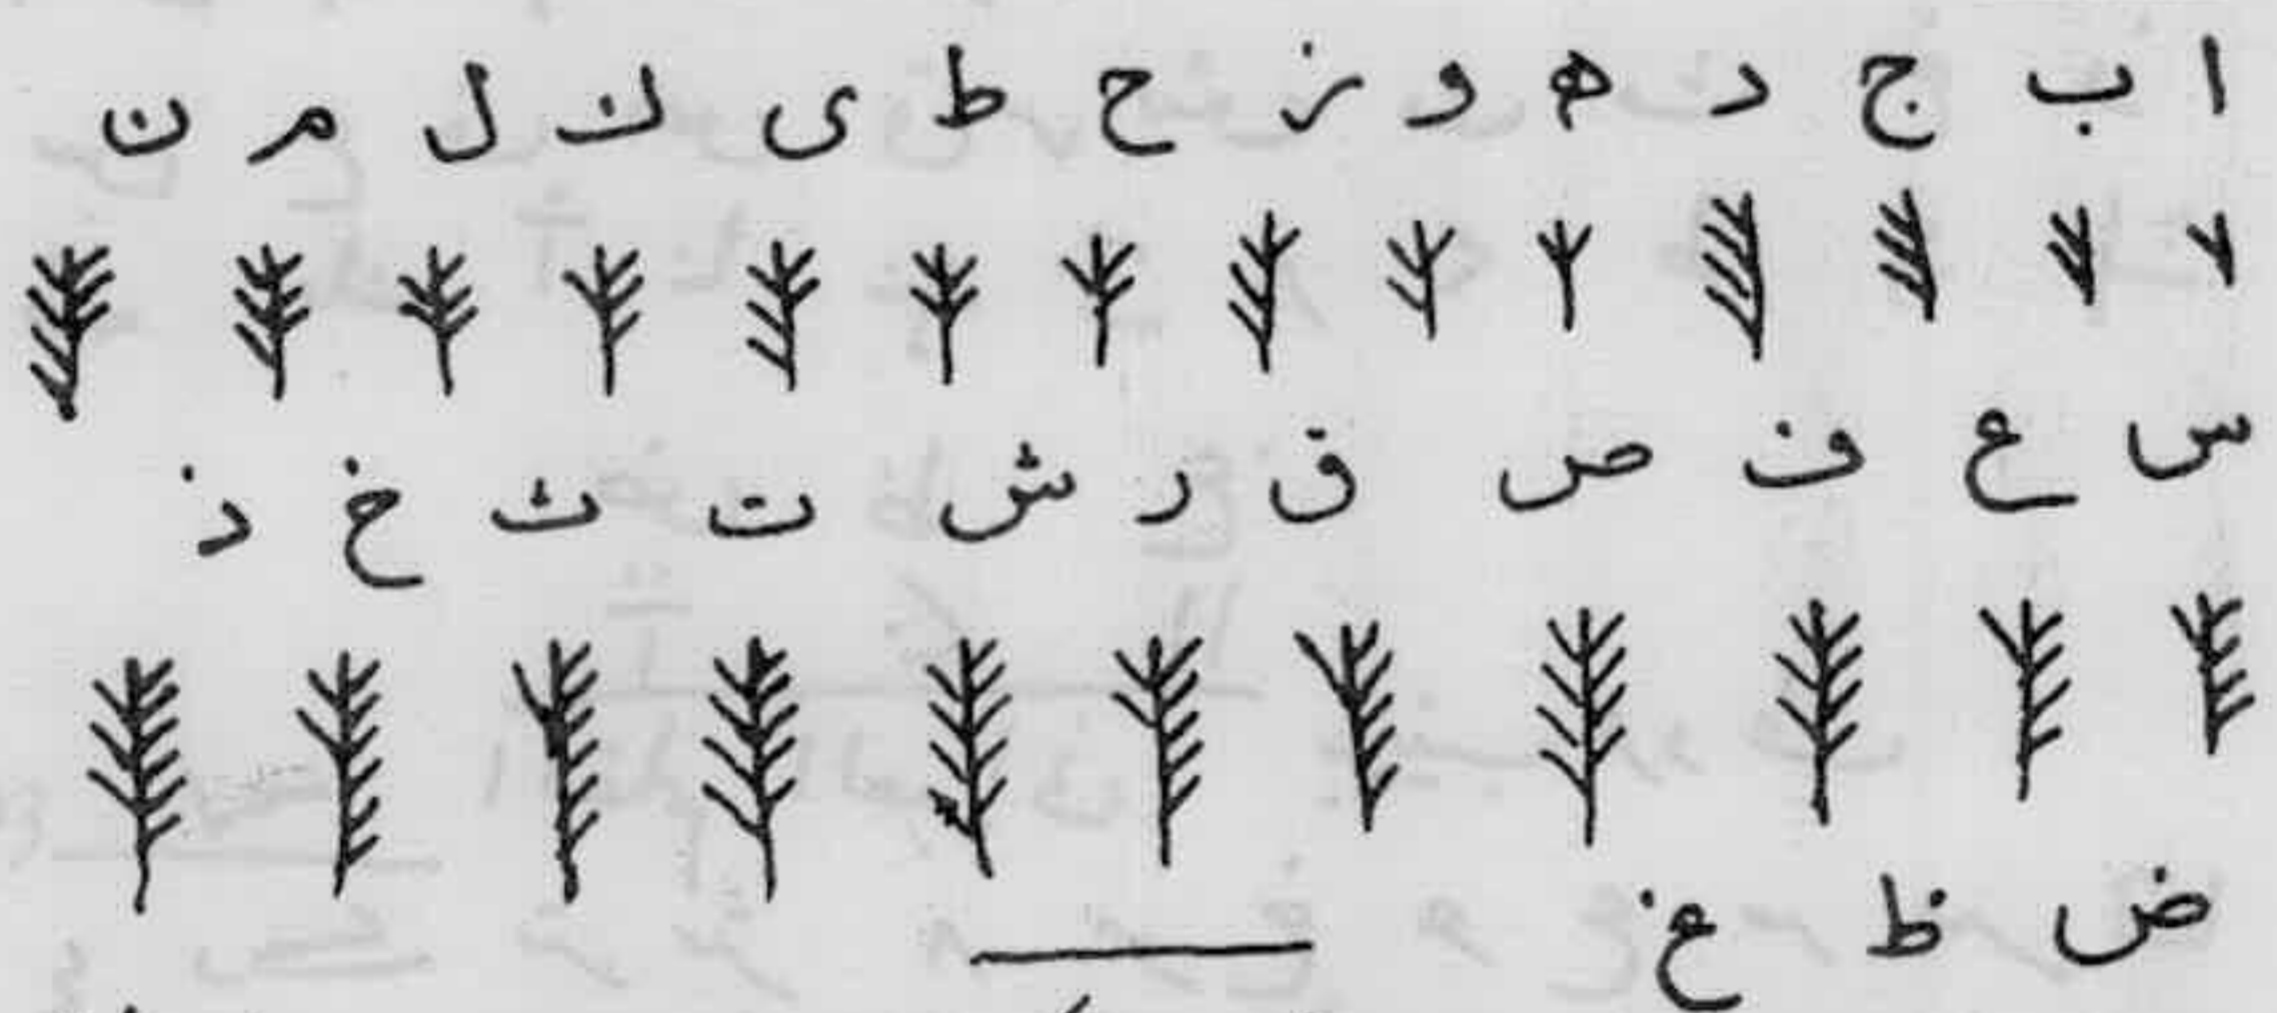 ا ب ج د ه و ز ح ط ى ك ل م ن
س ع ف ص ق ر ش ت ث خ ذ
ض ظ غ